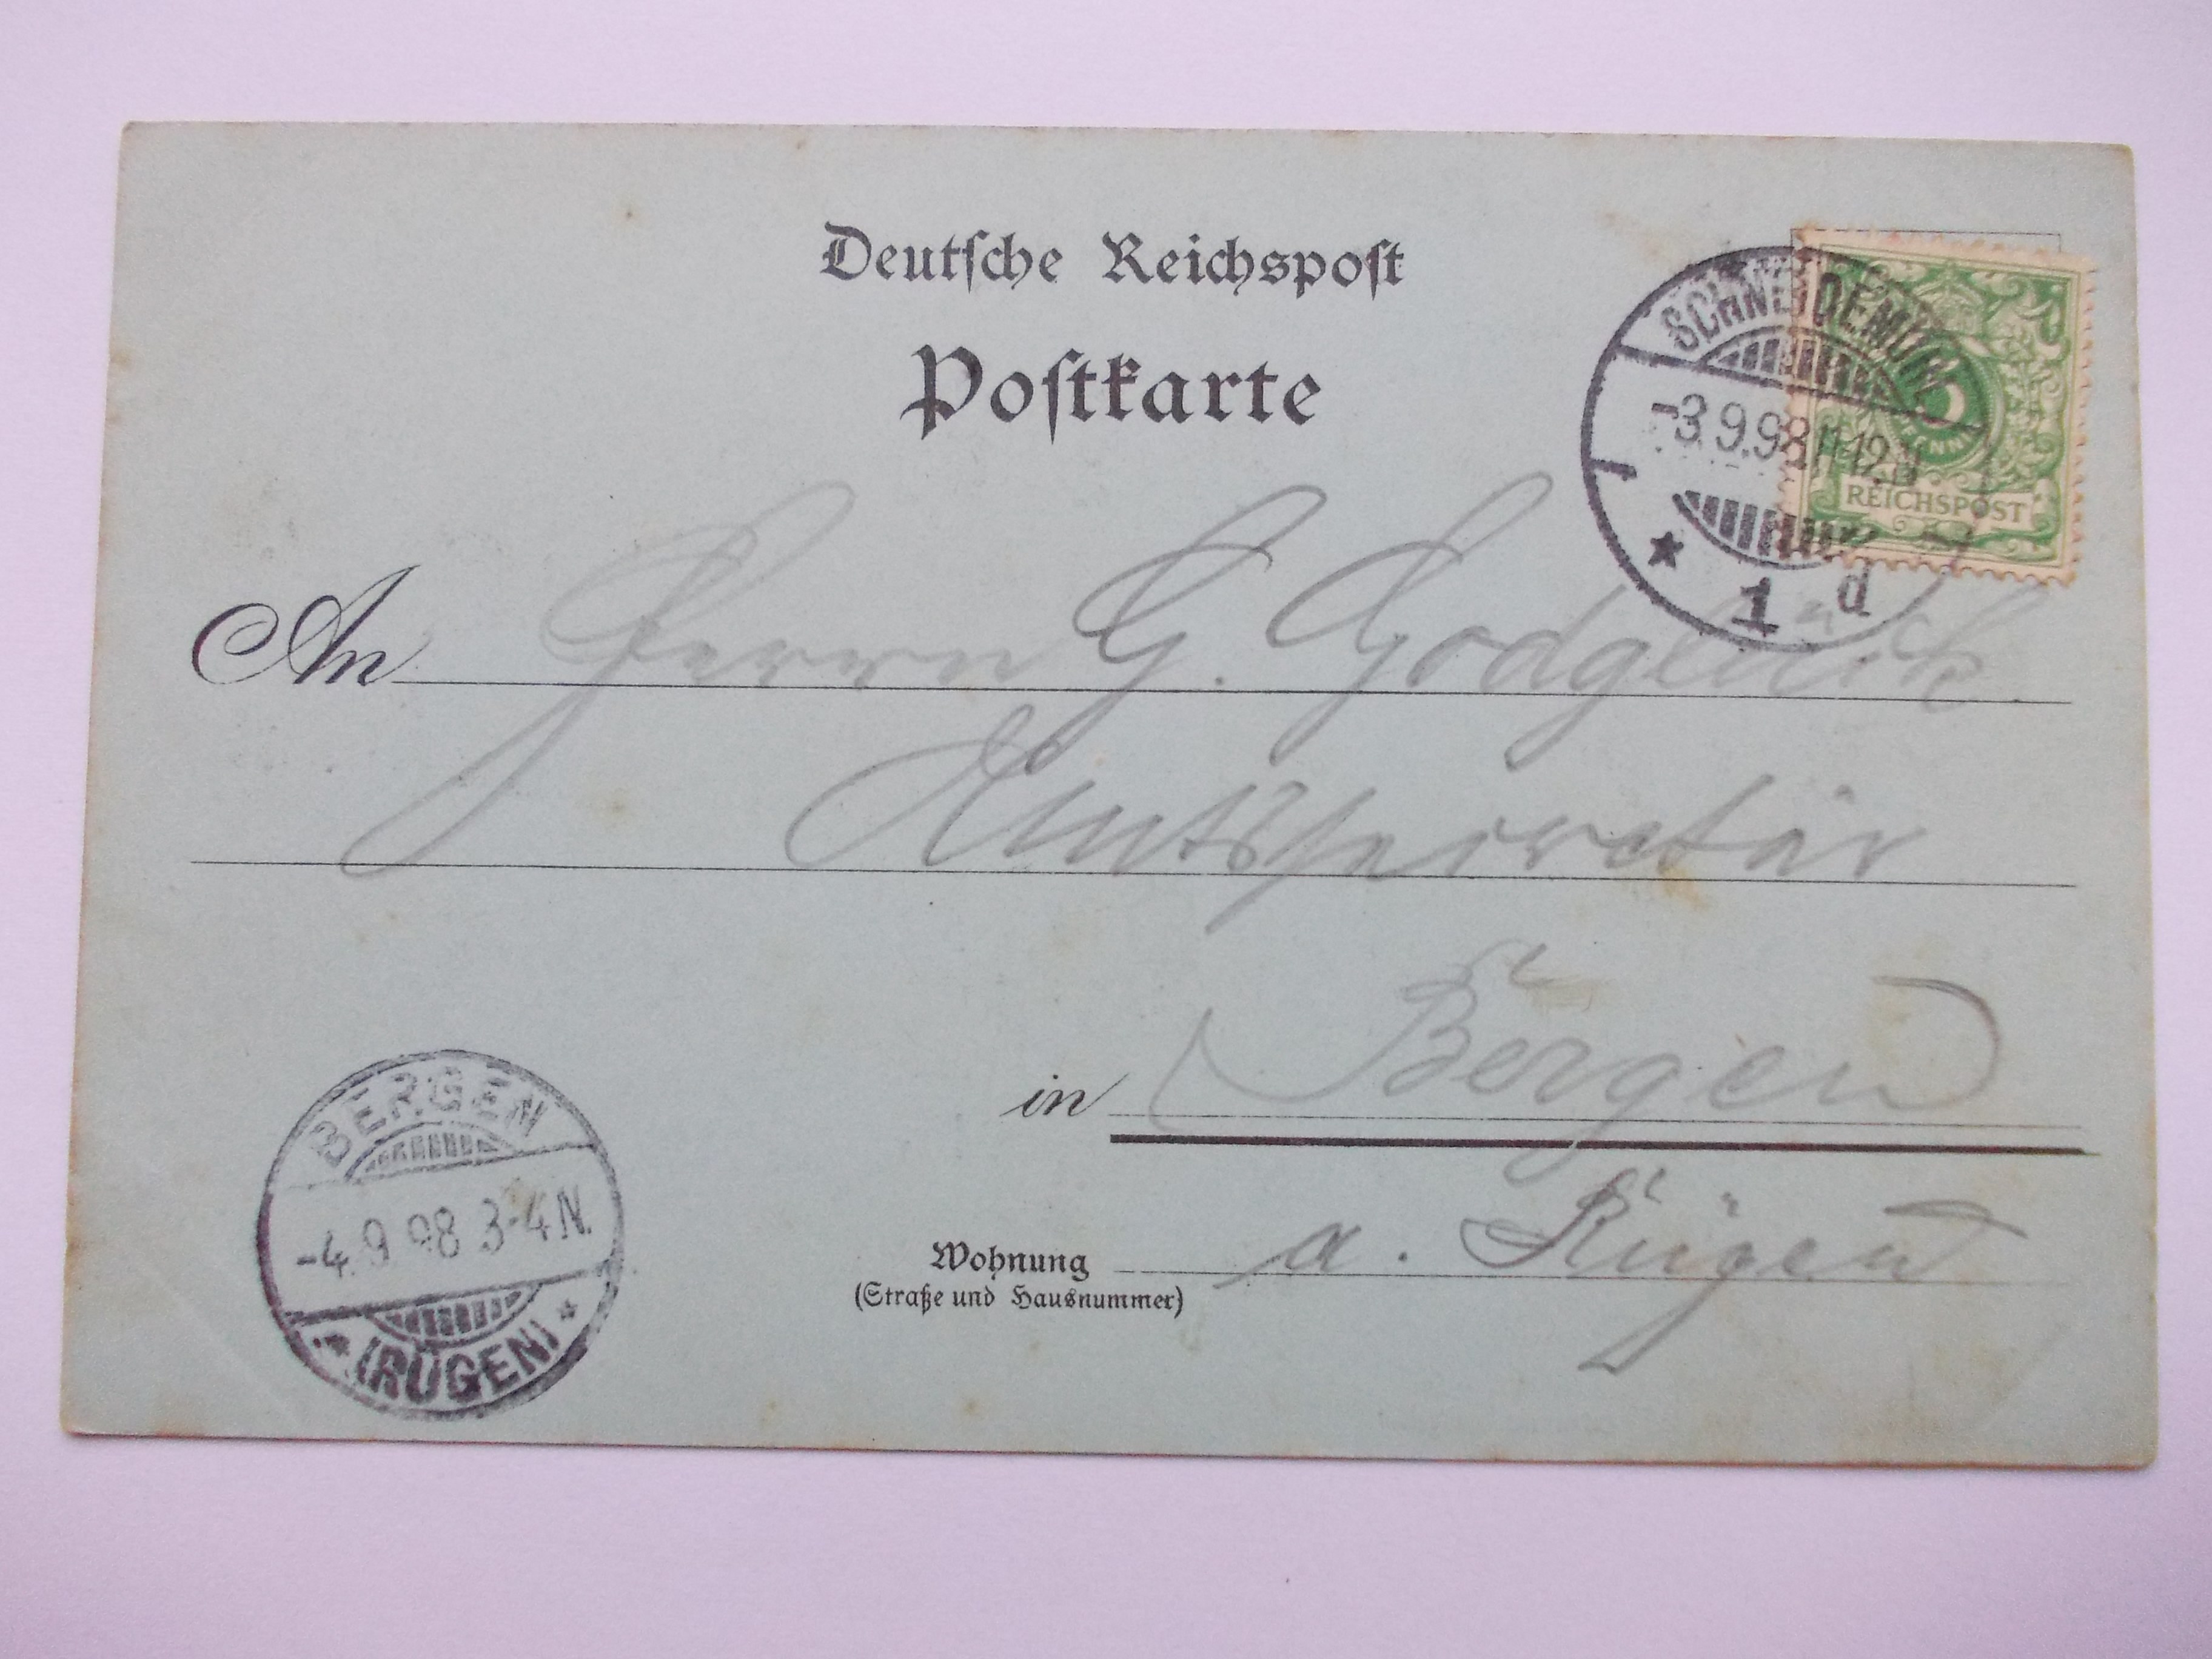 Deutsche Reichspost
Postkarte
SCHNEIDEMÜHL
-3.9.98 11-12.N
* 1 d
5
REICHSPOST
An Herrn G. Godglück
Amtssecretär
in Bergen
Wohnung a. Rügen
(Straße und Hausnummer)
BERGEN
-4.9.98 3-4 N.
* (RÜGEN) *